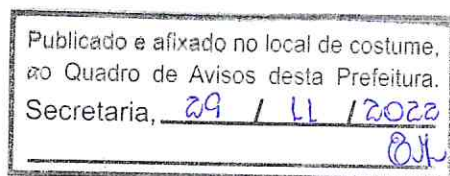 Publicado e afixado no local de costume,
ao Quadro de Avisos desta Prefeitura.
Secretaria, 29 / 11 / 2022